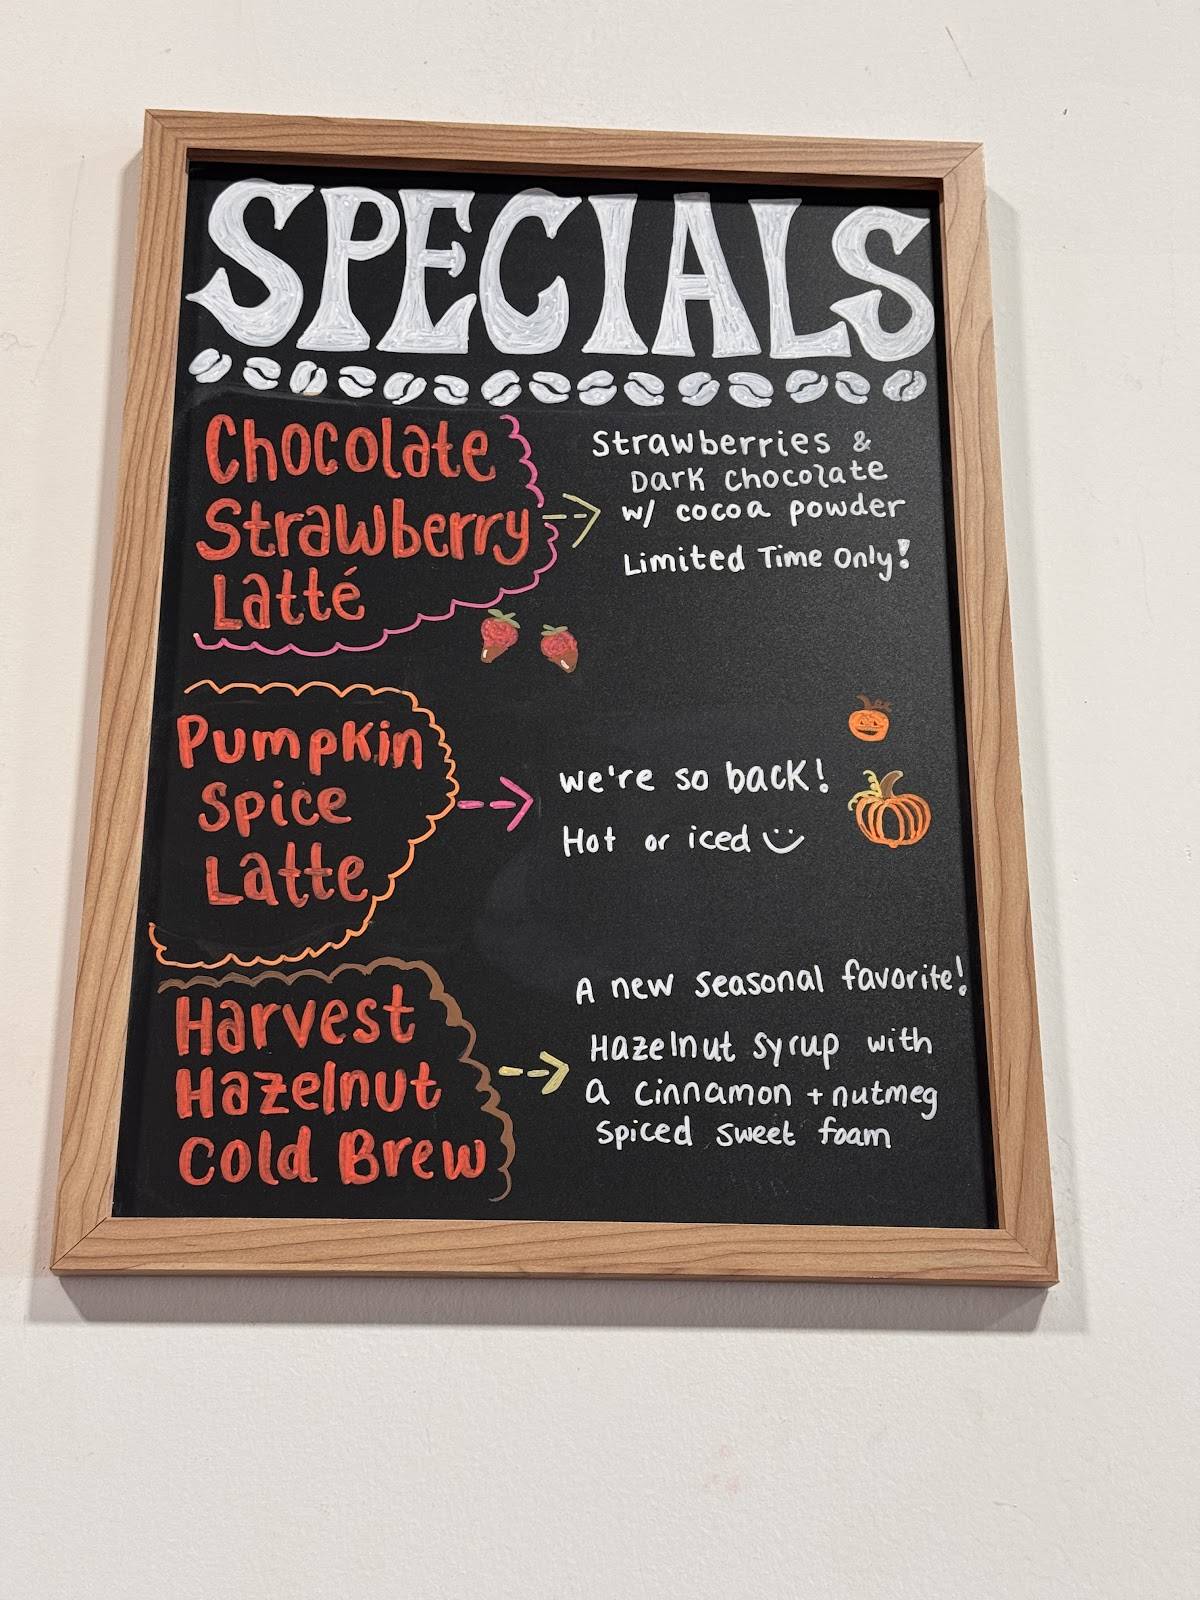 SPECIALS
Chocolate
Strawberry
Latté
Strawberries &
Dark Chocolate
w/ cocoa powder
Limited Time Only!
Pumpkin
Spice
Latte
we're so back!
Hot or iced
Harvest
Hazelnut
Cold Brew
A new seasonal favorite!
Hazelnut syrup with
a cinnamon + nutmeg
spiced sweet foam